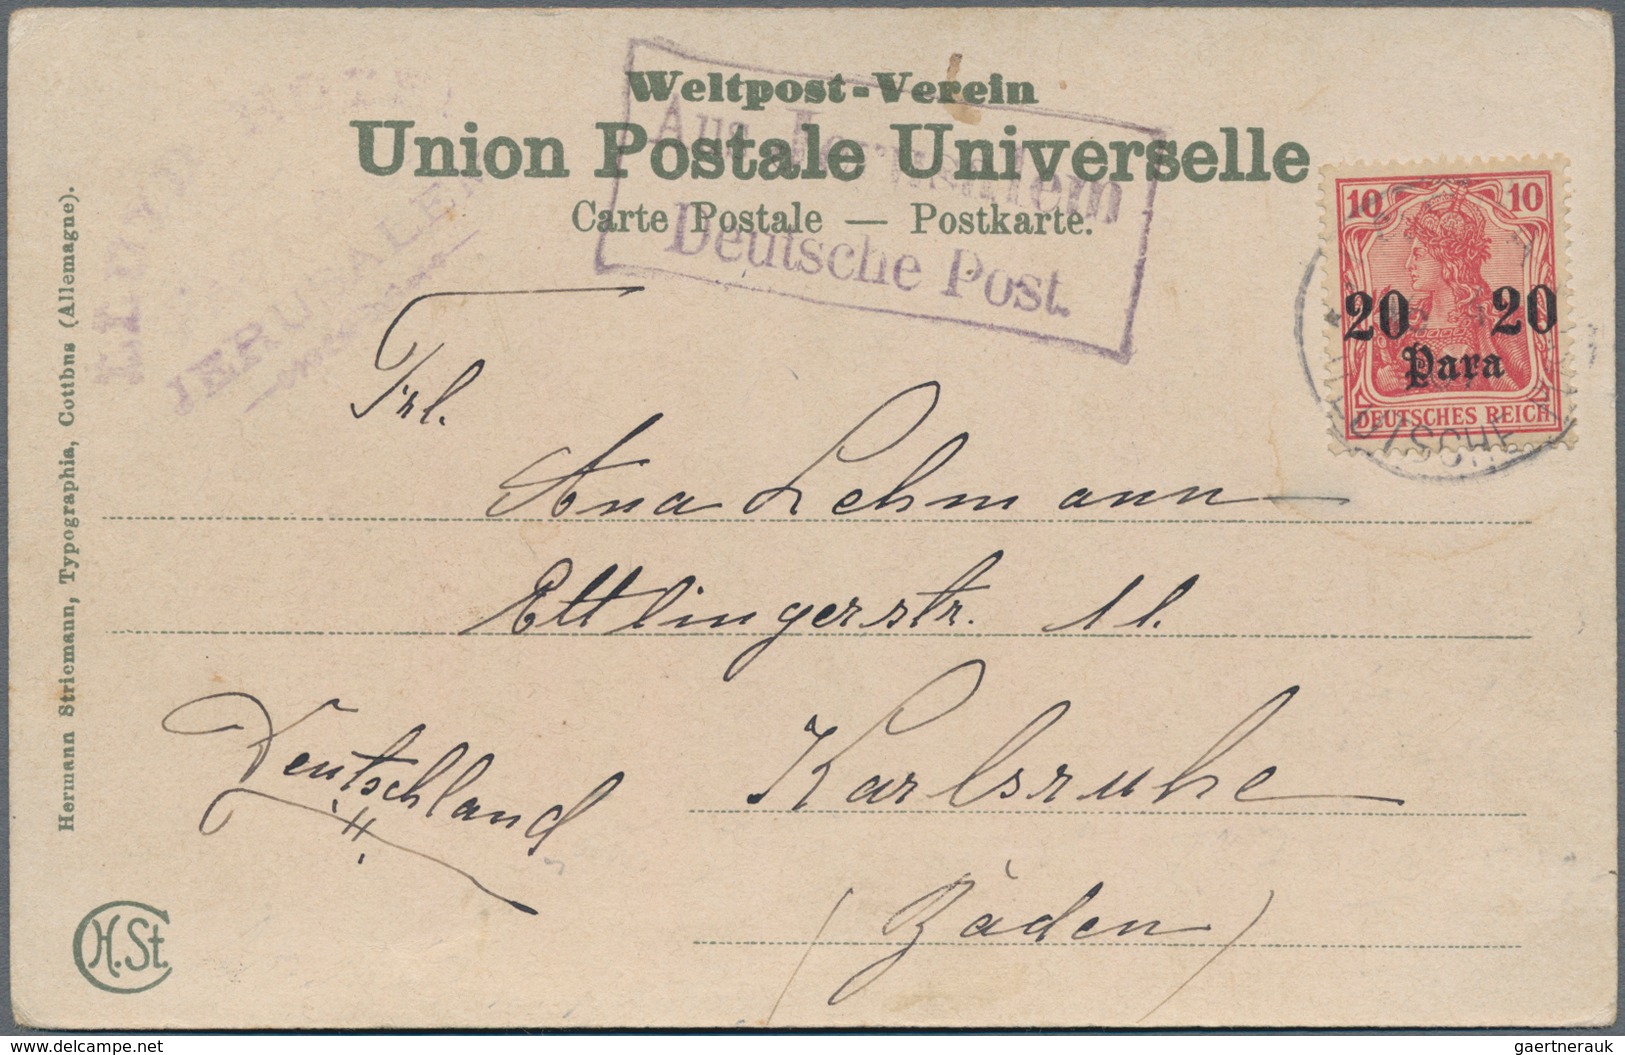 Weltpost-Verein
Union Postale Universelle
Carte Postale — Postkarte.
Aus Jerusalem
Deutsche Post.
LLOYD HOTEL
JERUSALEM
10 10
20 20
Para
DEUTSCHES REICH
DEUTSCHE
Frl.
Ana Lehmann
Ettlingerstr. 11.
Karlsruhe
(Baden)
Deutschland
Hermann Striemann, Typographia, Cottbus (Allemagne).
H. St.
delcampe.net
gaertnerauk